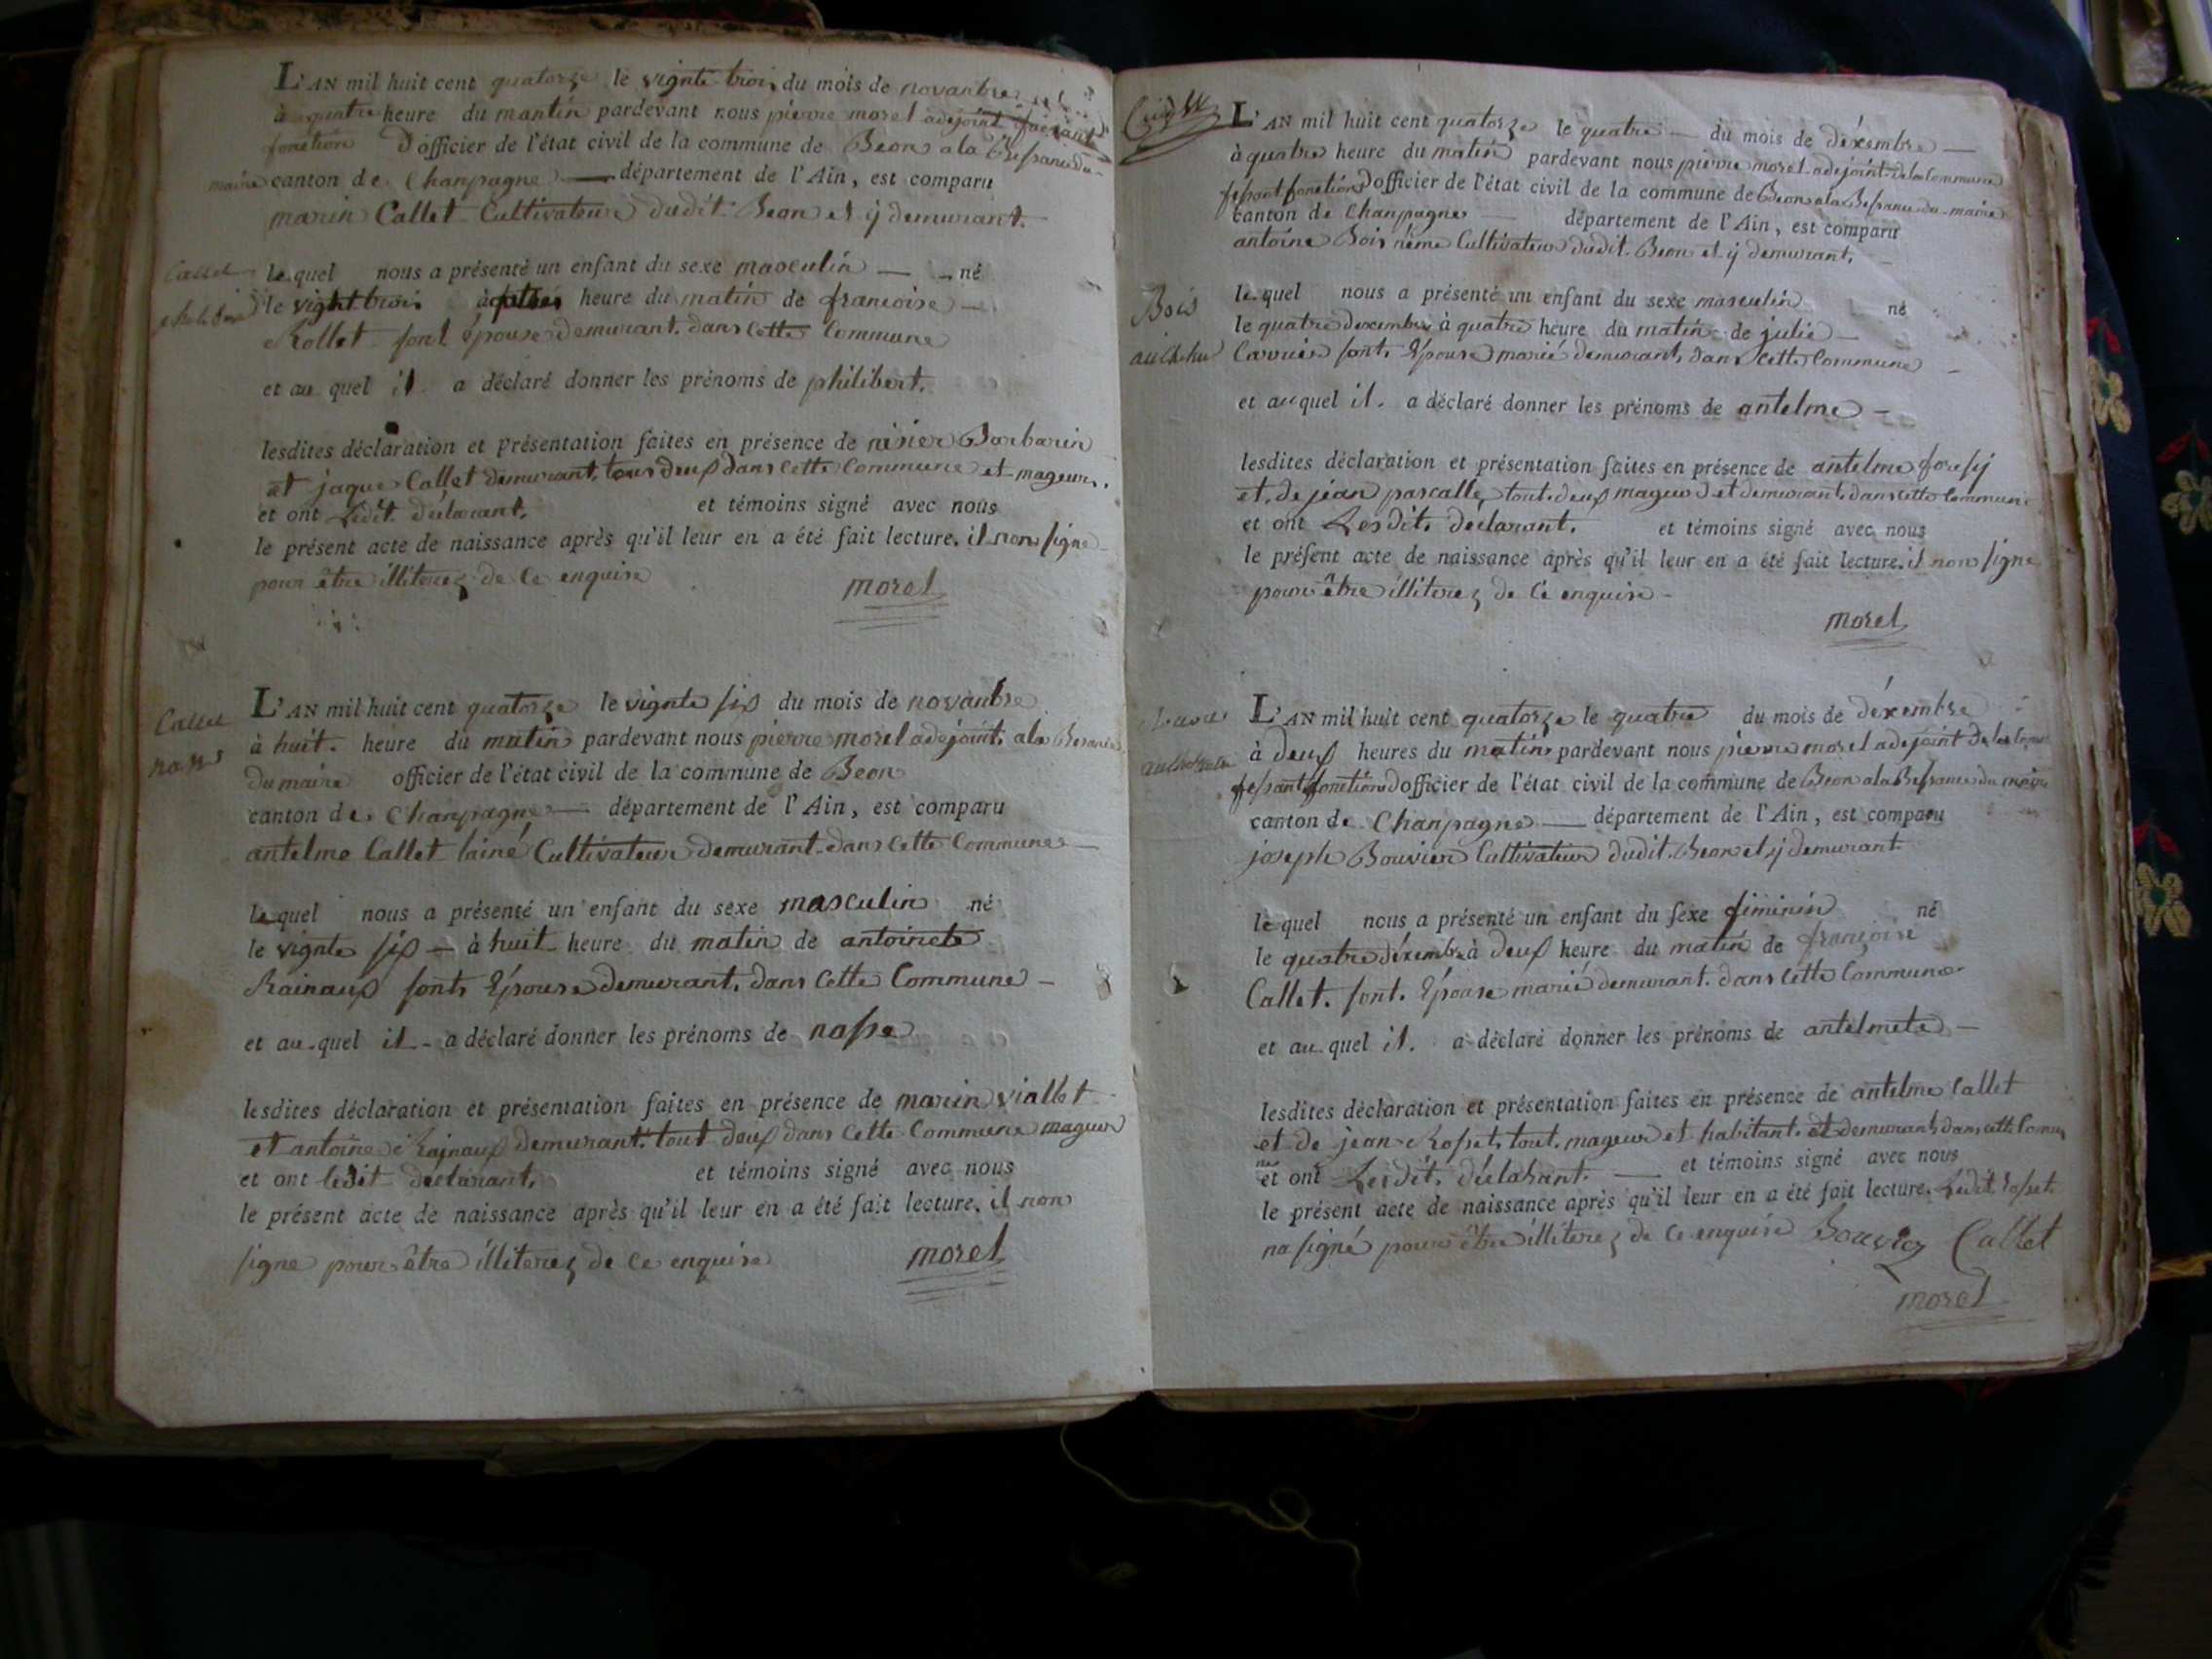 L'AN mil huit cent quatorze le vignte trois du mois de novanbre
à quatre heure du mantin pardevant nous pierre morel adejoint faesant
fonction D'officier de l'état civil de la commune de Beon a la Besance du
maire canton de Chanpagne — département de l'Ain, est comparu
marin Callet Cultivateur dudit Beon et ÿ demurant.
Callet
philibert
lequel nous a présenté un enfant du sexe masculin — né
le vight trois à heure du matin de francoise —
Rollet sont épouse demurant dans cette Commune
et au quel il a déclaré donner les prénoms de philibert.
lesdites déclaration et présentation faites en présence de nisier Barbarin
et jaque Callet demurant tous deux dans cette Commune et mageur.
et ont Ledit déclarant. et témoins signé avec nous
le présent acte de naissance après qu'il leur en a été fait lecture. il non signe
pour être illiterez de ce enquise
morel
Callet
L'AN mil huit cent quatorze le vignte six du mois de novanbre
à huit heure du matin pardevant nous pierre morel adejoint a la Besance
du maire officier de l'état civil de la commune de Beon
canton de Chanpagne — département de l'Ain, est comparu
antelme Callet lainé Cultivateur demurant dans cette Commune —
lequel nous a présenté un enfant du sexe masculin né
le vignte six — à huit heure du matin de antoinete
Rainaux sont Épouse demurant dans cette Commune —
et au quel il a déclaré donner les prénoms de nasse
lesdites déclaration et présentation faites en présence de marin viallet
et antoine Rainaux demurant tout deux dans cette Commune mageur
et ont ledit déclarant. et témoins signé avec nous
le présent acte de naissance après qu'il leur en a été fait lecture. il non
signe pour être illiterez de ce enquise
morel
L'AN mil huit cent quatorze le quatre — du mois de déxembre —
à quatre heure du matin pardevant nous pierre morel adejoint de la Commune
fesant fonction D'officier de l'état civil de la commune de Beon a la Besance du maire
canton de Chanpagne — département de l'Ain, est comparu
antoine Bois Cultivateur dudit Beon et ÿ demurant.
Bois
lequel nous a présenté un enfant du sexe masculin né
le quatre dexembre à quatre heure du matin de julie —
sont Épouse marié demurant dans cette Commune
et au quel il. a déclaré donner les prénoms de antelme —
lesdites déclaration et présentation faites en présence de antelme
et de jean pascalle tout deux mageur et demurant dans cette Commune
et ont Lesdits déclarant. et témoins signé avec nous
le présent acte de naissance après qu'il leur en a été fait lecture. il non signe
pour être illiterez de ce enquise
morel
L'AN mil huit cent quatorze le quatre du mois de déxembre
à deux heures du matin pardevant nous pierre morel adejoint de la
fesant fonction D'officier de l'état civil de la commune de Beon a la Besance du maire
canton de Chanpagne — département de l'Ain, est comparu
joseph Bouvier Cultivateur dudit Beon et ÿ demurant
lequel nous a présenté un enfant du sexe feminin né
le quatre déxembre à deux heure du matin de françoise
Callet. sont. Épouse marié demurant dans cette Commune
et au quel il. a déclaré donner les prénoms de antelmete —
lesdites déclaration et présentation faites en présence de antelme Callet
et de jean Rosset tout mageur et habitant et demurant dans cette
et ont Lesdit déclarant. — et témoins signé avec nous
le présent acte de naissance après qu'il leur en a été fait lecture. Ledit rosset
na signé pour être illiterez de ce enquise Bouvier Callet
morel